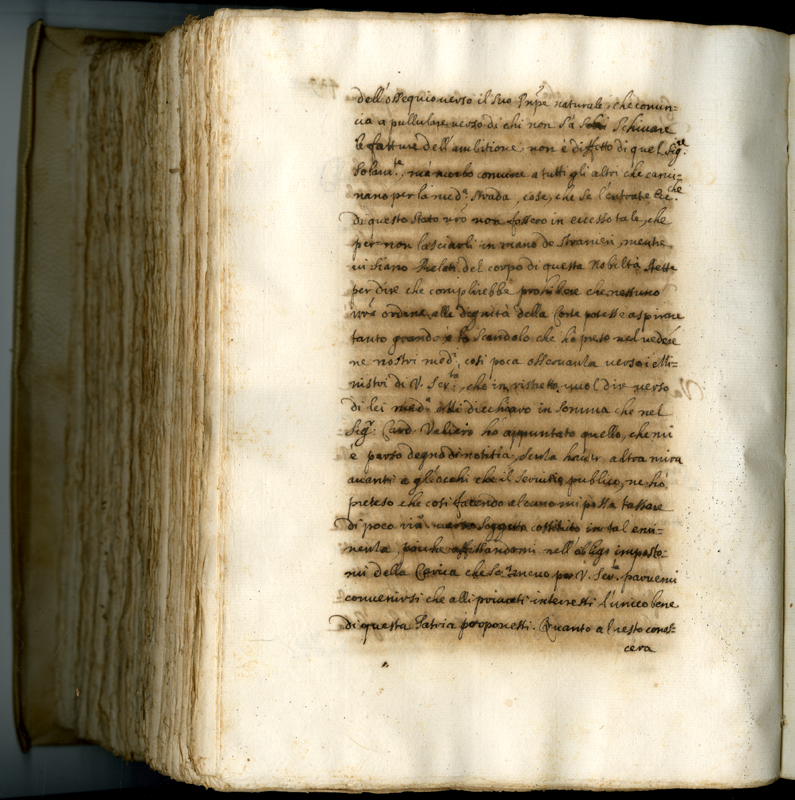 dell'ossequio verso il suo Prñpe naturale, che comin=
cia a pullulare verso di chi non sà schivare
le fatture dell'ambitione non è diffetto di quel Sig.re
solam.te, mà morbo comune a tutti gli altri che cami=
nano per la med.a strada, cose, che se l'entrate Ecc.che
di questo Stato nrõ non fossero in eccesso tale, che
per non lasciarli in mano de stranieri, mentre
vi siano Prelati del corpo di questa Nobiltà stette
per dire che complirebbe prohibere che nessuno
nrõ ordine alle dignità della Corte potesse aspirare
tanto grande è lo scandolo che hò preso nel vedere
ne nostri med.i così poca osservanza verso i Mi=
nistri di V. Ser.tà, che in ristretto vuol dir verso
di lei med.a dichiaro in somma che nel
Sig.r Card. Valiero hò appuntato quello, che mi
è parso degno di notitia, senza haver altra mira
avanti a gl'occhi che il servitio publico, ne hò
preteso che così facendo alcuno mi possa tassare
di poco verso soggetto costituito in tal emi=
nenza, poiche nell'obligo imposto=
mi della Carica che sostenevo per V. Ser.tà parvemi
convenirsi che alli privati interessi l'unico bene
di questa Patria proponessi. Quanto al resto conos=
cerà